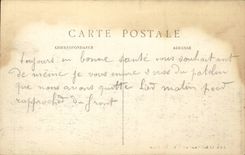 CARTE POSTALE
CORRESPONDANCE ADRESSE
toujours en bonne santé vous souhaitant
de même je vous envoie 3 vues du patelin
que nous avons quitté hier matin pour
rapprocher du front